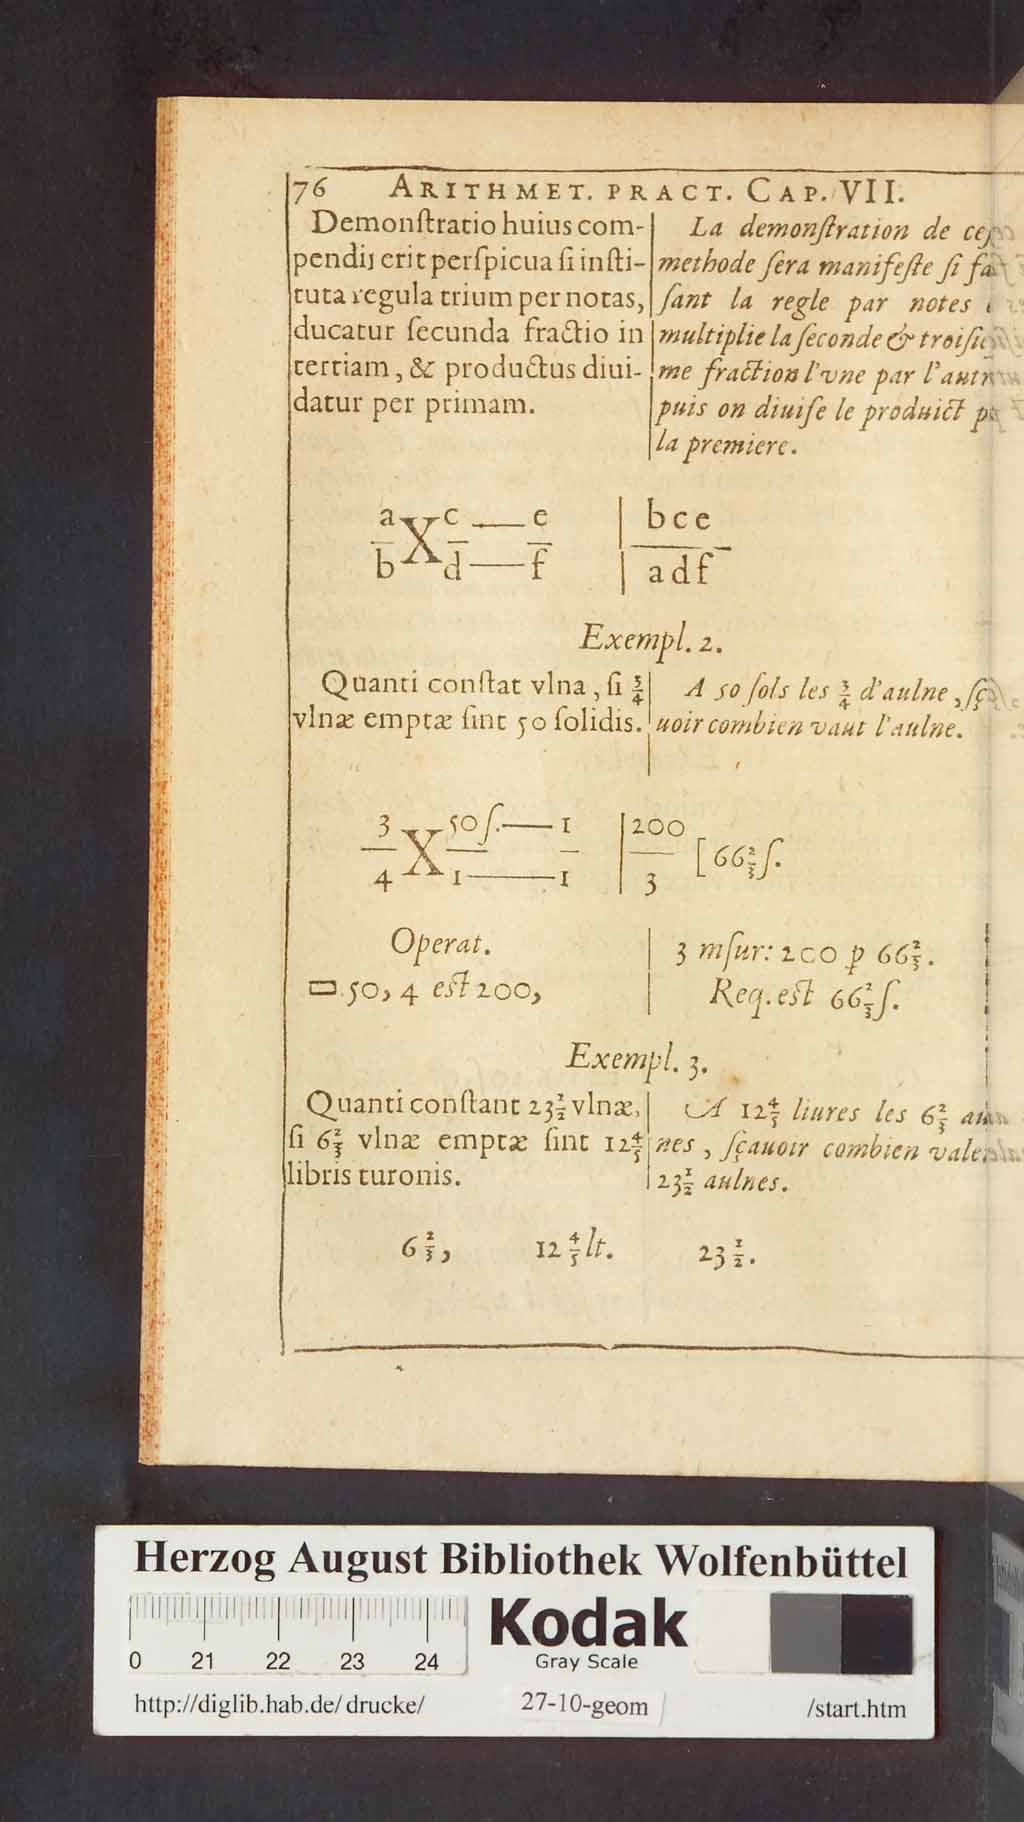 76 ARITHMET. PRACT. CAP. VII.
Demonſtratio huius com-
pendij erit perſpicua ſi inſti-
tuta regula trium per notas,
ducatur ſecunda fractio in
tertiam, & productus diui-
datur per primam.
La demonſtration de
methode ſera manifeſte ſi
ſant la regle par notes
multiplie la ſeconde & troiſie
me fraction l'vne par l'autr
puis on diuiſe le produict
la premiere.
a c — e | b c e
b X d — f | a d f
Exempl. 2.
Quanti conſtat vlna, ſi 3/4
vlnæ emptæ ſint 50 ſolidis.
A 50 ſols les 3/4 d'aulne, ſç
uoir combien vaut l'aulne.
3 50 ſ. — 1 | 200
4 X 1 — 1 | 3 [66 2/3 ſ.
Operat.
▭. 50, 4 eſt 200,
3 mſur: 200 ꝑ 66 2/3.
Req. eſt 66 2/3 ſ.
Exempl. 3.
Quanti conſtant 23 1/2 vlnæ,
ſi 6 2/3 vlnæ emptæ ſint 12 4/5
libris turonis.
A 12 4/5 liures les 6 2/3
nes, ſçauoir combien
23 1/2 aulnes.
6 2/3, 12 4/5 lt. 23 1/2.
Herzog August Bibliothek Wolfenbüttel
0 21 22 23 24
Kodak
Gray Scale
http://diglib.hab.de/drucke/ 27-10-geom /start.htm